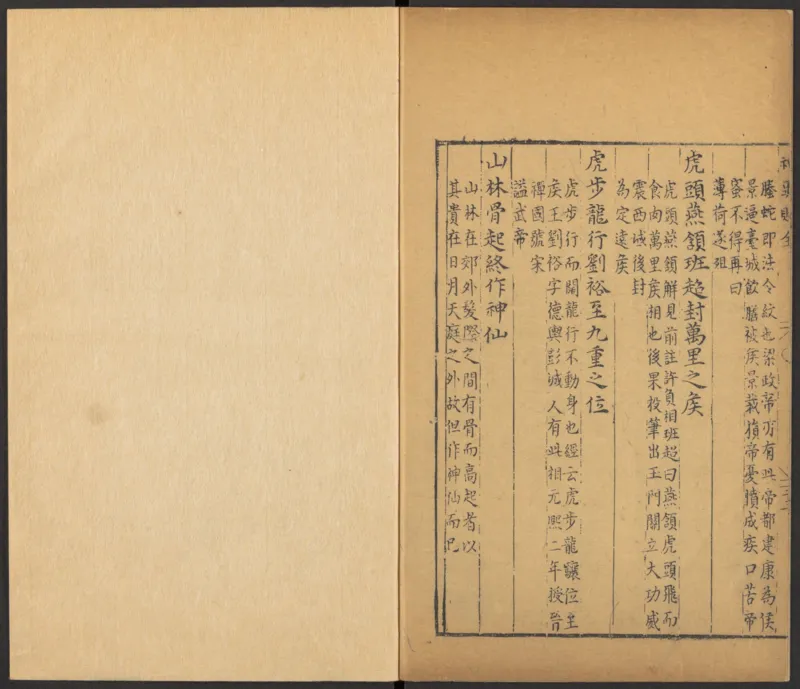 螣蛇即法令紋也梁政帝方有此帝都建康為侯
景逼臺城飲膳被矦景裁損帝憂憤成疾口苦帝
蜜不得再曰
荷荷遂殂
虎頭燕頷班超封萬里之矦
虎頭燕頷解見前註許負相班超曰燕頷虎頭飛而
食肉萬里矦相也後果投筆出玉門關立大功威
震西域後封
為定遠矦
虎步龍行劉裕至九重之位
虎步行而闊龍行不動身也經云虎步龍驤位至
矦王劉裕字德輿彭城人有此相元熙二年授晉
禪國號宋
謚武帝
山林骨起終作神仙
山林在郊外髮際之間有骨而高起者以
其貴在日月天庭之外故但作神仙而已